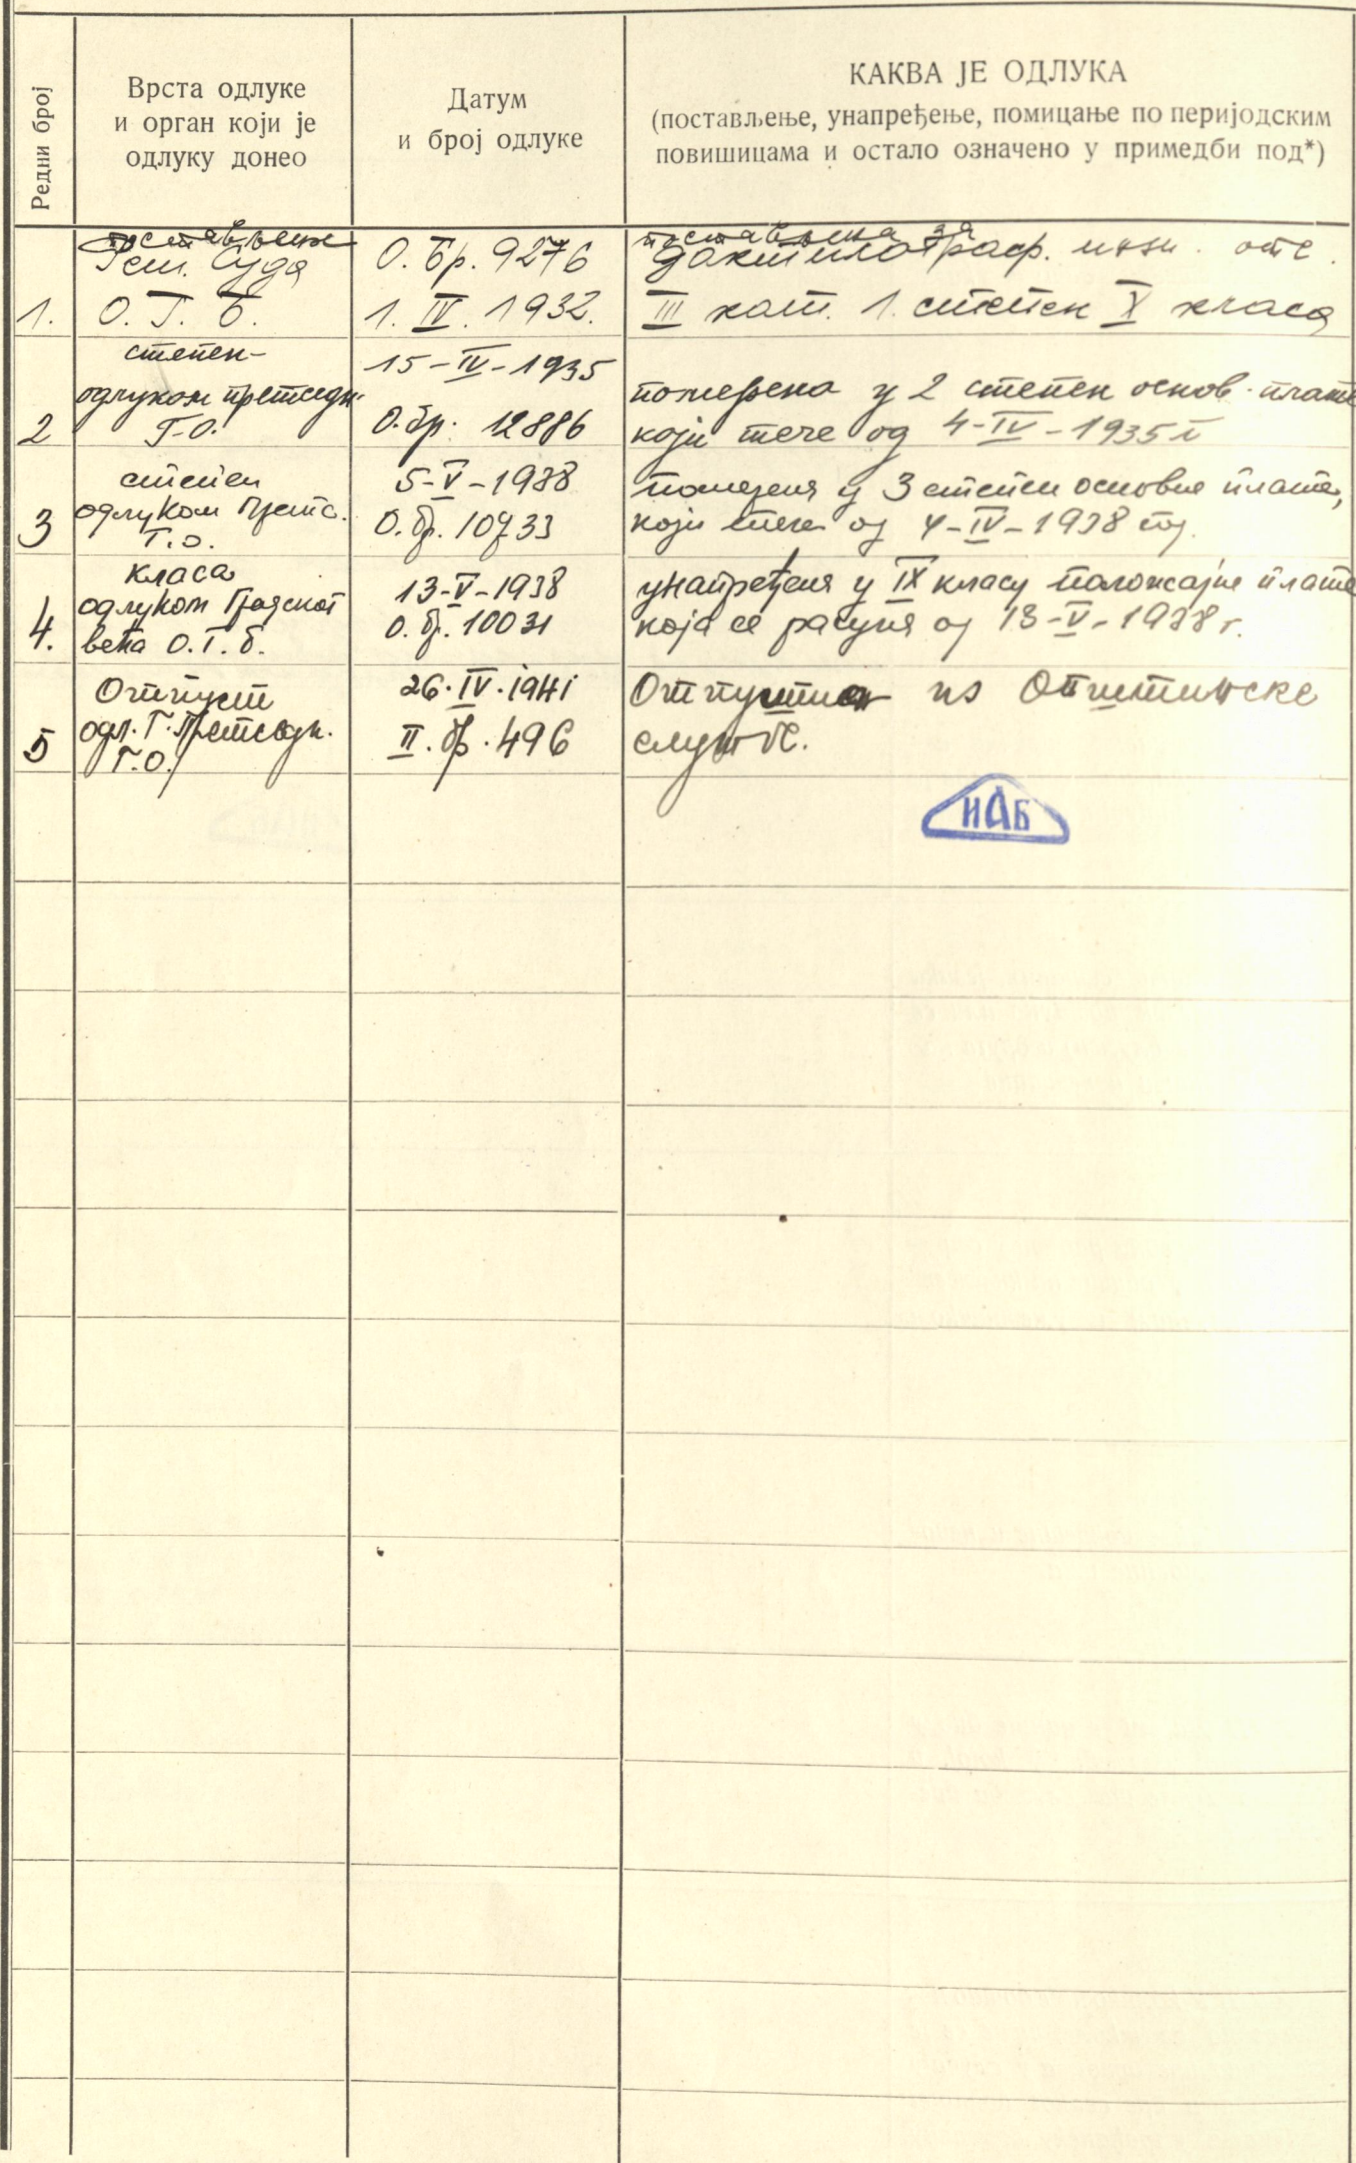 Редни број
Врста одлуке
и орган који је
одлуку донео
Датум
и број одлуке
КАКВА ЈЕ ОДЛУКА
(постављење, унапређење, помицање по перијодским
повишицама и остало означено у примедби под*)
1.
постављење
Реш. Суда
О. Г. Б.
О. Бр. 9276
1. IV. 1932.
постављена за
дактилограф. инж. отс.
III кат. 1. степен X класа
2
степен-
одлуком претседн.
Г.О.
15-IV-1935
О.бр. 12886
померена у 2 степен основ. плате
који тече од 4-IV-1935 г
3
степен
одлуком Претс.
Г.О.
5-V-1938
О.бр. 10733
померена у 3 степен основне плате,
који тече од 4-IV-1938 год.
4.
класа
одлуком Градског
већа О.Г.Б.
13-V-1938
О. бр. 10031
унапређена у IX класу положајне плате
која се рачуна од 13-V-1938 г.
5
Отпуст
одл. Г. Претседн.
Г.О.
26.IV.1941
II. бр. 496
из Општинске
службе.
ИАБ